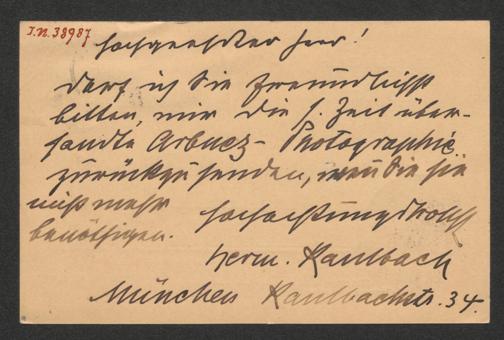 J.N. 38987
Hochgeehrter Herr!
Darf ich Sie freundlichst
bitten, mir die s. Zeit über-
sandte Arbuez-Photographie
zurückzusenden, wenn Sie sie
nicht mehr
benöthigen.
Hochachtungsvollst
Herm. Kaulbach
München Kaulbachstr. 34.